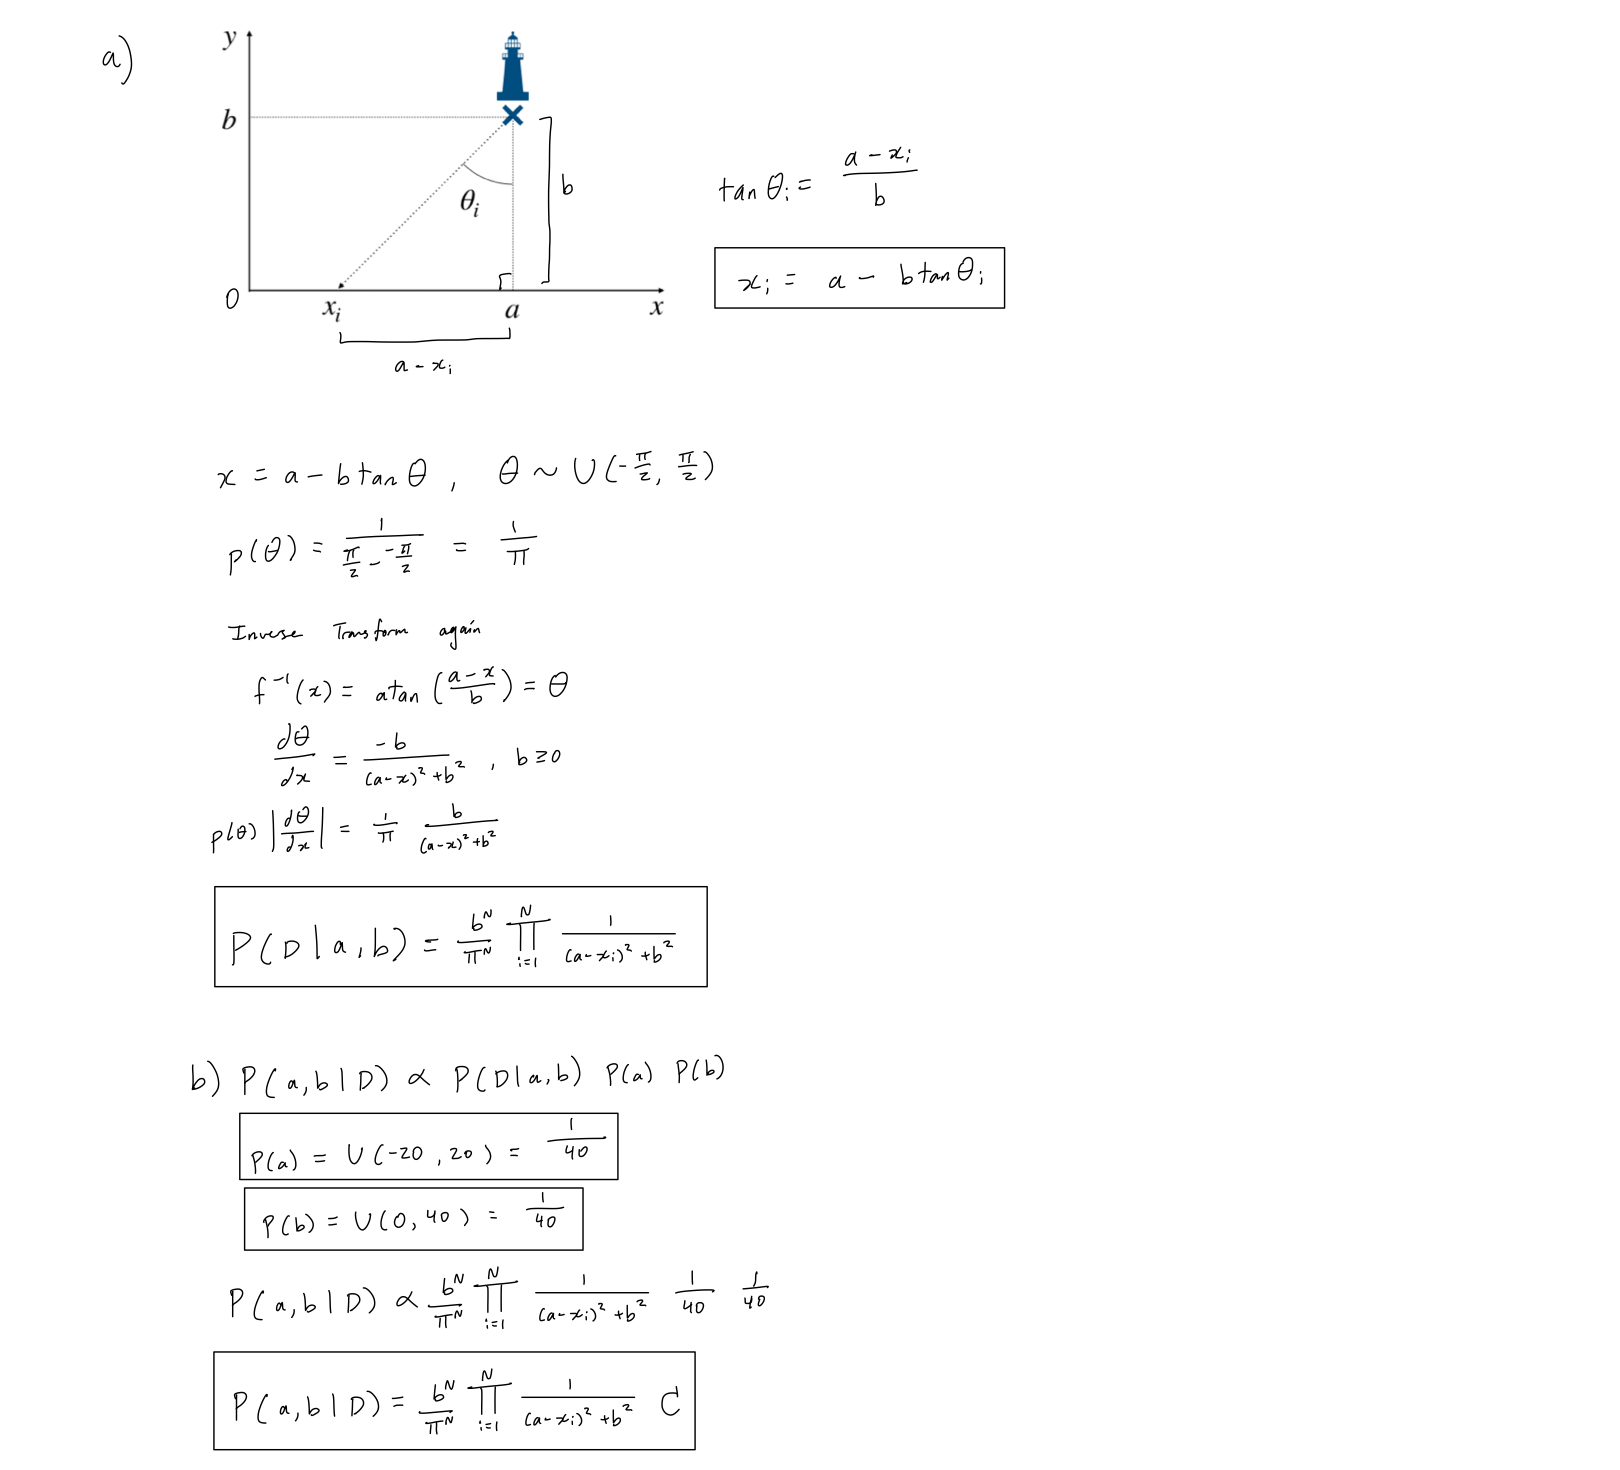 a)
y
b
b
θi
0
xi
a
x
a - xi
tan θi = (a - xi)/b
xi = a - b tan θi
x = a - b tan θ , θ ~ U(-π/2, π/2)
p(θ) = 1/(π/2 - -π/2) = 1/π
Inverse Transform again
f⁻¹(x) = atan ((a-x)/b) = θ
dθ/dx = -b/((a-x)² + b²) , b ≥ 0
p(θ) |dθ/dx| = 1/π b/((a-x)² + b²)
P(D | a, b) = b^N/π^N ∏_{i=1}^{N} 1/((a-xi)² + b²)
b) P(a, b | D) ∝ P(D | a, b) P(a) P(b)
P(a) = U(-20, 20) = 1/40
P(b) = U(0, 40) = 1/40
P(a, b | D) ∝ b^N/π^N ∏_{i=1}^{N} 1/((a-xi)² + b²) 1/40 1/40
P(a, b | D) = b^N/π^N ∏_{i=1}^{N} 1/((a-xi)² + b²) C